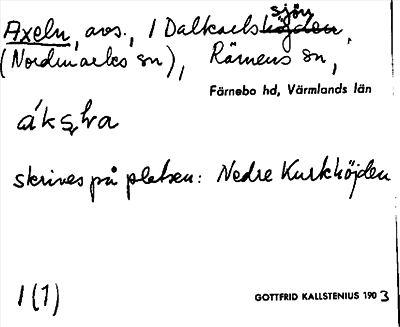 Axeln, avs., i Dalkarlssjön,
(Nordmarks sn), Rämens sn,
Färnebo hd, Värmlands län
skrives på platsen: Nedre Kurkhöjden
1(1)
GOTTFRID KALLSTENIUS 1903